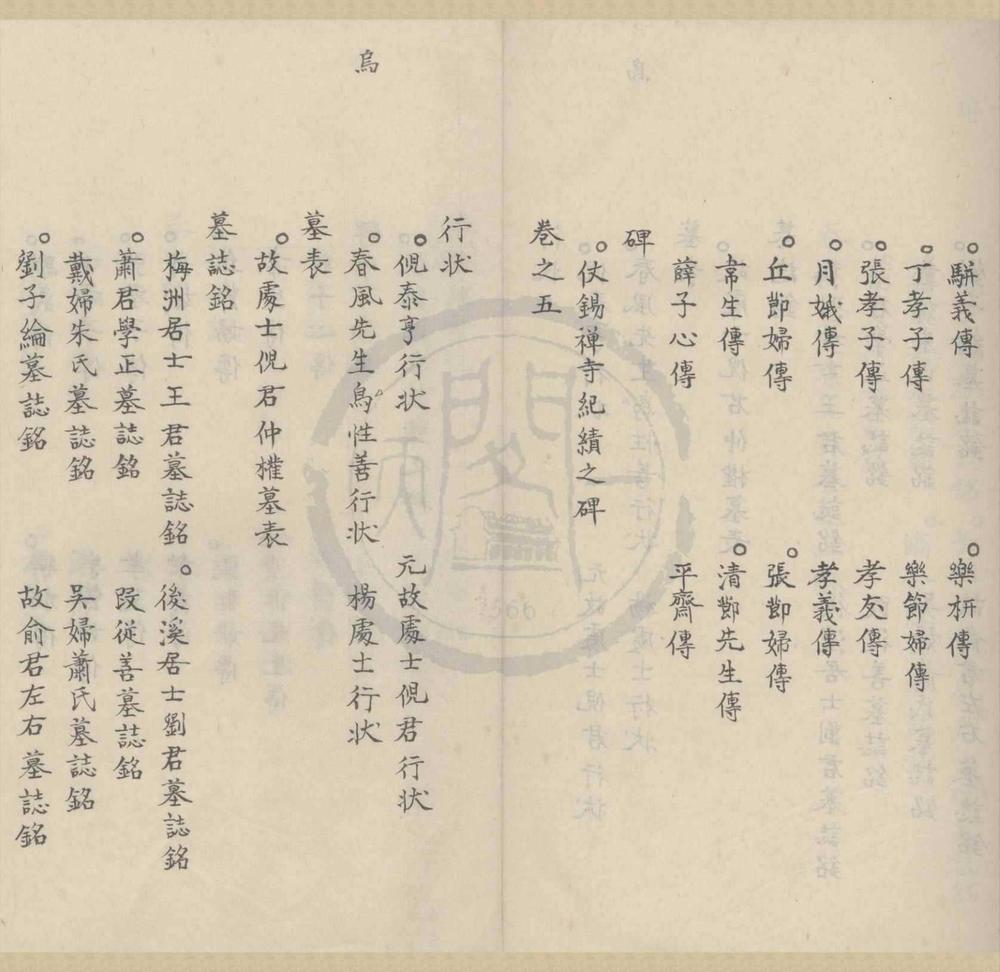 ○駢義傳　○樂枅傳
○丁孝子傳　樂節婦傳
○張孝子傳　孝友傳
○月娥傳　孝義傳
○丘節婦傳　○張節婦傳
韋生傳　○清節先生傳
薛子心傳　平齋傳
碑
○仗錫禅寺紀績之碑
卷之五
行状
○倪泰亨行状　元故處士倪君行状
○春風先生烏性善行状　楊處士行状
烏
墓表
○故處士倪君仲權墓表
墓誌銘
○梅洲居士王君墓誌銘　○後溪居士劉君墓誌銘
○蕭君學正墓誌銘　段從善墓誌銘
戴婦朱氏墓誌銘　吳婦蕭氏墓誌銘
○劉子綸墓誌銘　故俞君左右墓誌銘